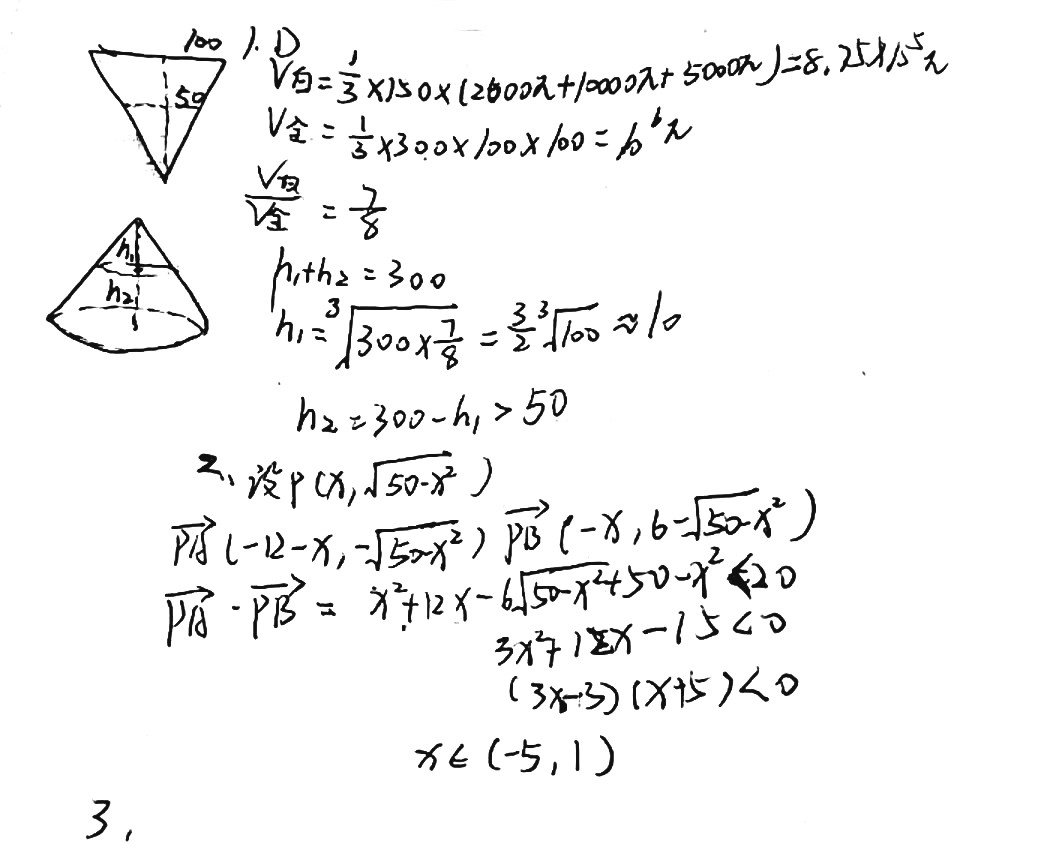 100
50
1. D
V白=1/3×150×(2600π+10000π+5000π)=8.75×10^5π
V全=1/3×300×100×100=10^6π
V白/V全=7/8
h₁
h₂
h₁+h₂=300
h₁=∛(300×7/8)=3/2∛100≈10
h₂=300-h₁>50
2、设P(x,√(50-x²))
PA→(-12-x,-√(50-x²)) PB→(-x,6-√(50-x²))
PA→·PB→=x²+12x-6√(50-x²)+50-x²<20
3x²+12x-15<0
(3x-3)(x+5)<0
x∈(-5,1)
3.